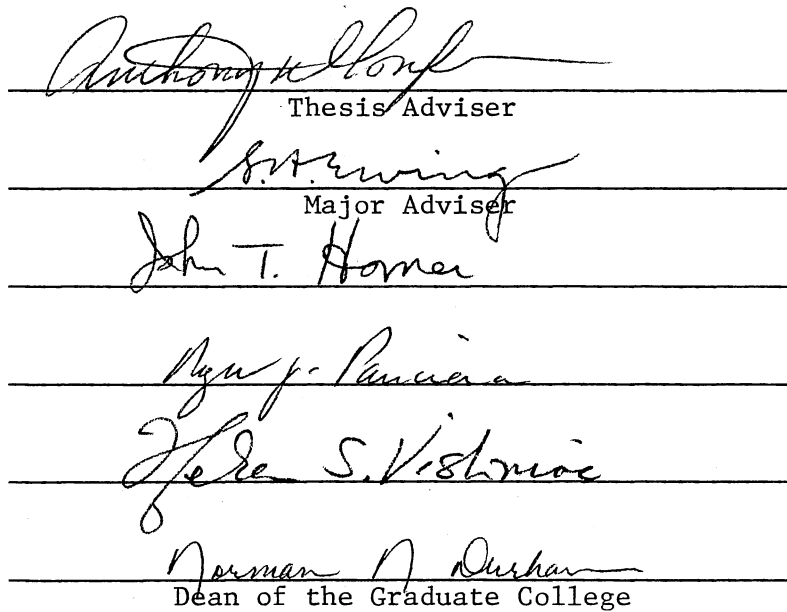 Anthony W
Thesis Adviser
S.A. Ewing
Major Adviser
John T. Homer
J. Panciera
Helen S. Vishniac
Norman N Durham
Dean of the Graduate College